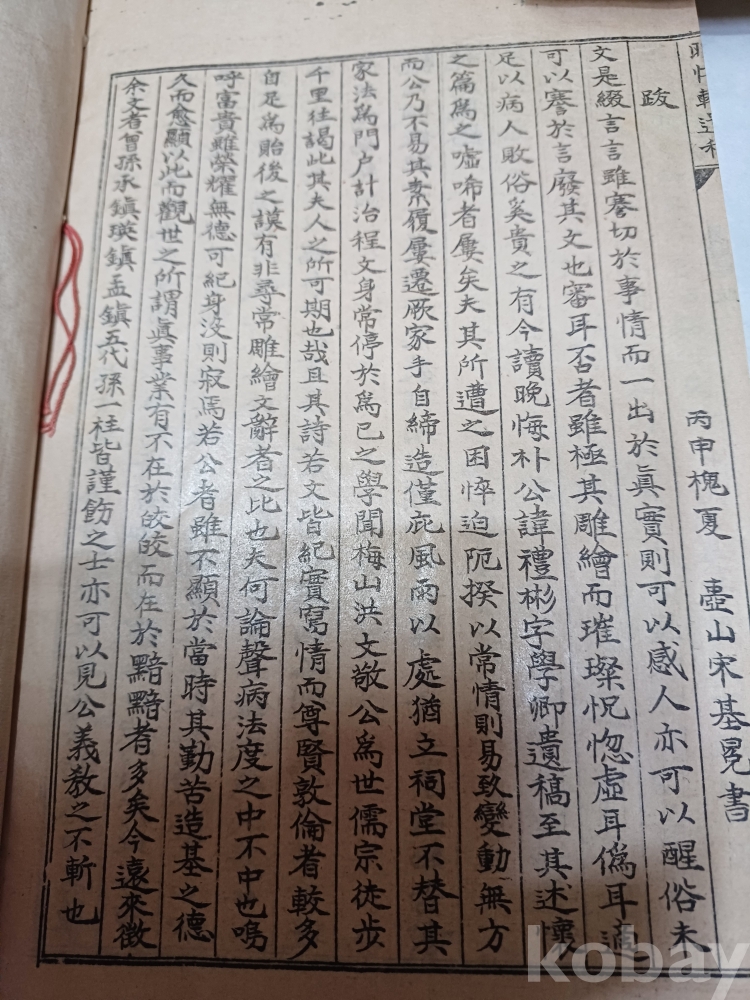 晦軒遺稿
跋
丙申槐夏 壺山宋基冕書
文是綴言言雖蹇切於事情而一出於眞實則可以感人亦可以醒俗未
可以蹇於言廢其文也審耳否者雖極其雕繪而璀璨怳惚虛耳僞耳適
足以病人敗俗奚貴之有今讀晩悔朴公諱禮彬字學卿遺稿至其述懷
之篇爲之噓唏者屢矣夫其所遭之困悴迫阨揆以常情則易致變動無方
而公乃不易其素履屢遷厥家手自締造僅庇風雨以處猶立祠堂不替其
家法爲門户計治程文身常停於爲己之學聞梅山洪文敬公爲世儒宗徒步
千里往謁此其夫人之所可期也哉且其詩若文皆紀實寫情而尊賢敦倫者較多
自足爲貽後之謨有非尋常雕繪文辭者之比也夫何論聲病法度之中不中也嗚
呼富貴雖榮耀無德可紀身沒則寂焉若公者雖不顯於當時其勤苦造基之德
久而愈顯以此而觀世之所謂眞事業有不在於皎皎而在於黯黯者多矣今遠來徵
余文者曾孫承鎭瑛鎭孟鎭五代孫一柱皆謹飭之士亦可以見公義敎之不斬也
kobay